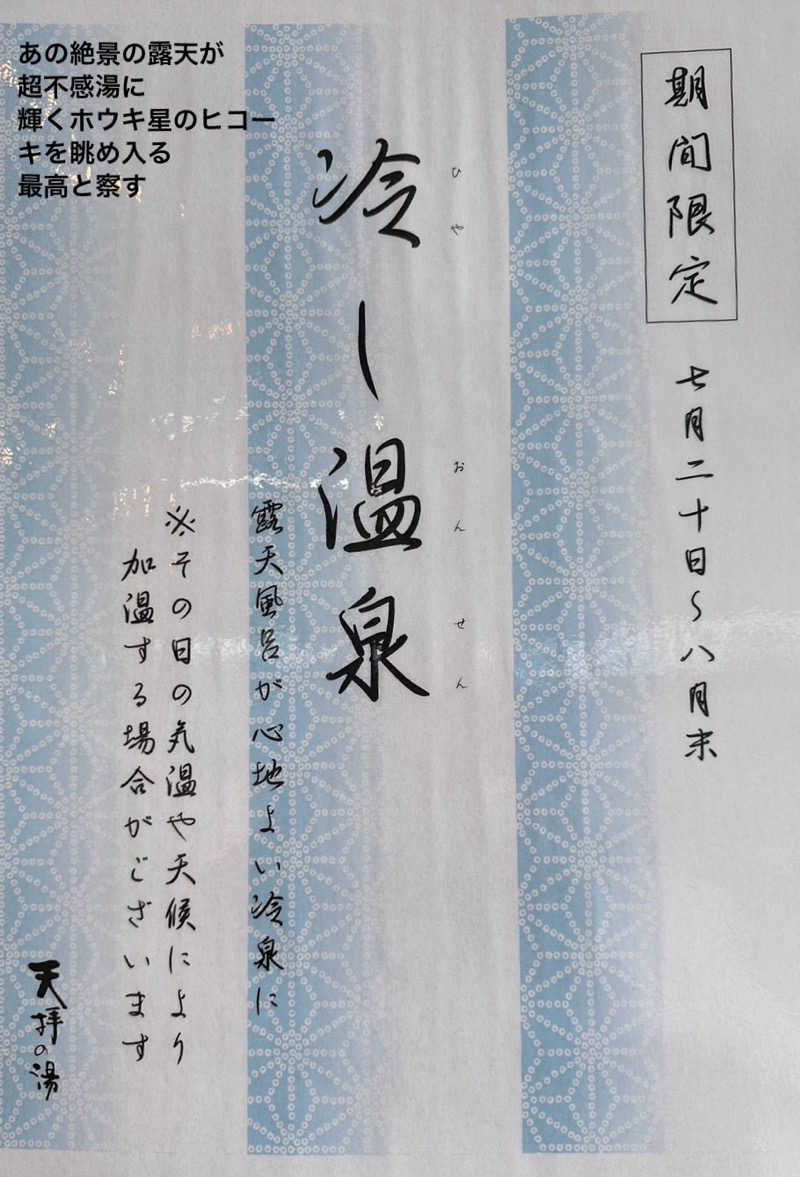 あの絶景の露天が
超不感湯に
輝くホウキ星のヒコー
キを眺め入る
最高と察す
期間限定
七月二十日〜八月末
ひや
おんせん
冷し温泉
露天風呂が心地よい冷泉に
※その日の気温や天候により
加温する場合がございます
天拝の湯